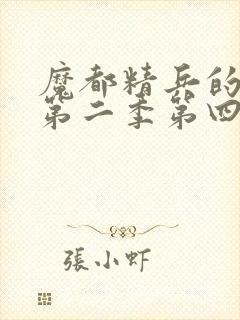 魔都精兵的
第二季第四
張小虾